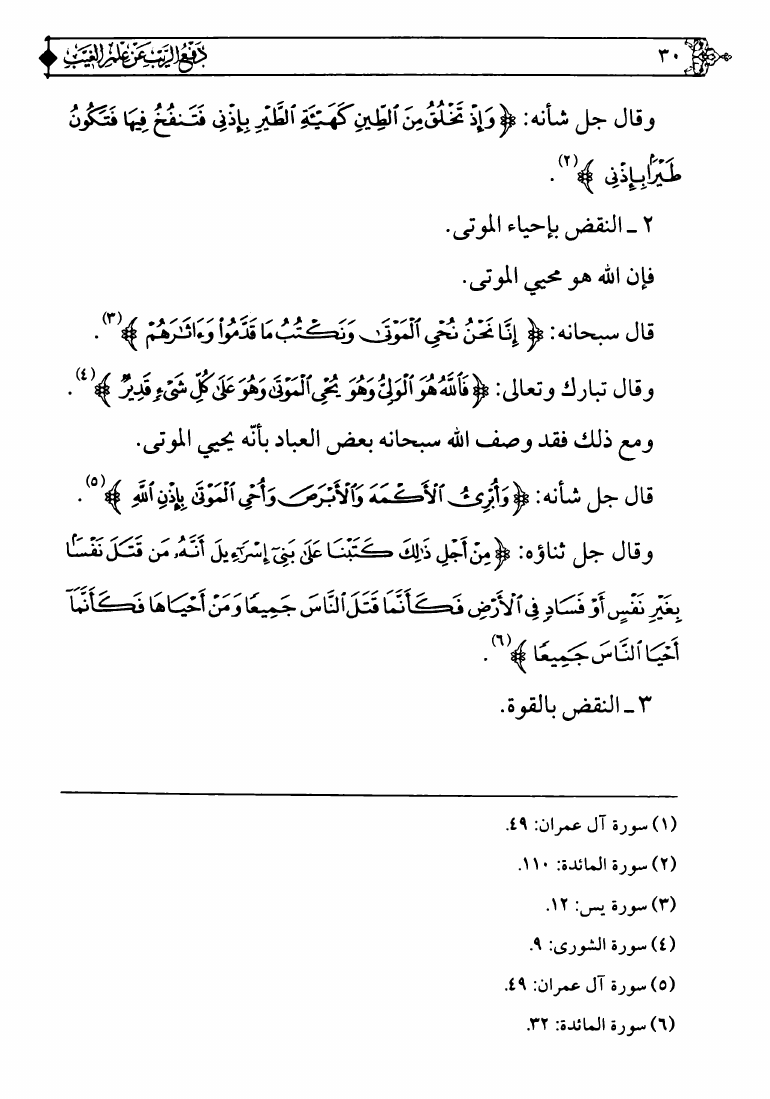 ٣٠ دفع الريب عن علم الغيب
وقال جل شأنه: ﴿ وَإِذْ تَخْلُقُ مِنَ ٱلطِّينِ كَهَيْئَةِ ٱلطَّيْرِ بِإِذْنِى فَتَنفُخُ فِيهَا فَتَكُونُ
طَيْرًۢا بِإِذْنِى ﴾(٢).
٢ ـ النقض بإحياء الموتى.
فإن الله هو محيي الموتى.
قال سبحانه: ﴿ إِنَّا نَحْنُ نُحْىِ ٱلْمَوْتَىٰ وَنَكْتُبُ مَا قَدَّمُوا۟ وَءَاثَٰرَهُمْ ﴾(٣).
وقال تبارك وتعالى: ﴿ فَٱللَّهُ هُوَ ٱلْوَلِىُّ وَهُوَ يُحْىِ ٱلْمَوْتَىٰ وَهُوَ عَلَىٰ كُلِّ شَىْءٍ قَدِيرٌ ﴾(٤).
ومع ذلك فقد وصف الله سبحانه بعض العباد بأنّه يحيي الموتى.
قال جل شأنه: ﴿ وَأُبْرِئُ ٱلْأَكْمَهَ وَٱلْأَبْرَصَ وَأُحْىِ ٱلْمَوْتَىٰ بِإِذْنِ ٱللَّهِ ﴾(٥).
وقال جل ثناؤه: ﴿ مِنْ أَجْلِ ذَٰلِكَ كَتَبْنَا عَلَىٰ بَنِىٓ إِسْرَٰٓءِيلَ أَنَّهُۥ مَن قَتَلَ نَفْسًۢا
بِغَيْرِ نَفْسٍ أَوْ فَسَادٍ فِى ٱلْأَرْضِ فَكَأَنَّمَا قَتَلَ ٱلنَّاسَ جَمِيعًا وَمَنْ أَحْيَاهَا فَكَأَنَّمَآ
أَحْيَا ٱلنَّاسَ جَمِيعًا ﴾(٦).
٣ ـ النقض بالقوة.
(١) سورة آل عمران: ٤٩.
(٢) سورة المائدة: ١١٠.
(٣) سورة يس: ١٢.
(٤) سورة الشورى: ٩.
(٥) سورة آل عمران: ٤٩.
(٦) سورة المائدة: ٣٢.